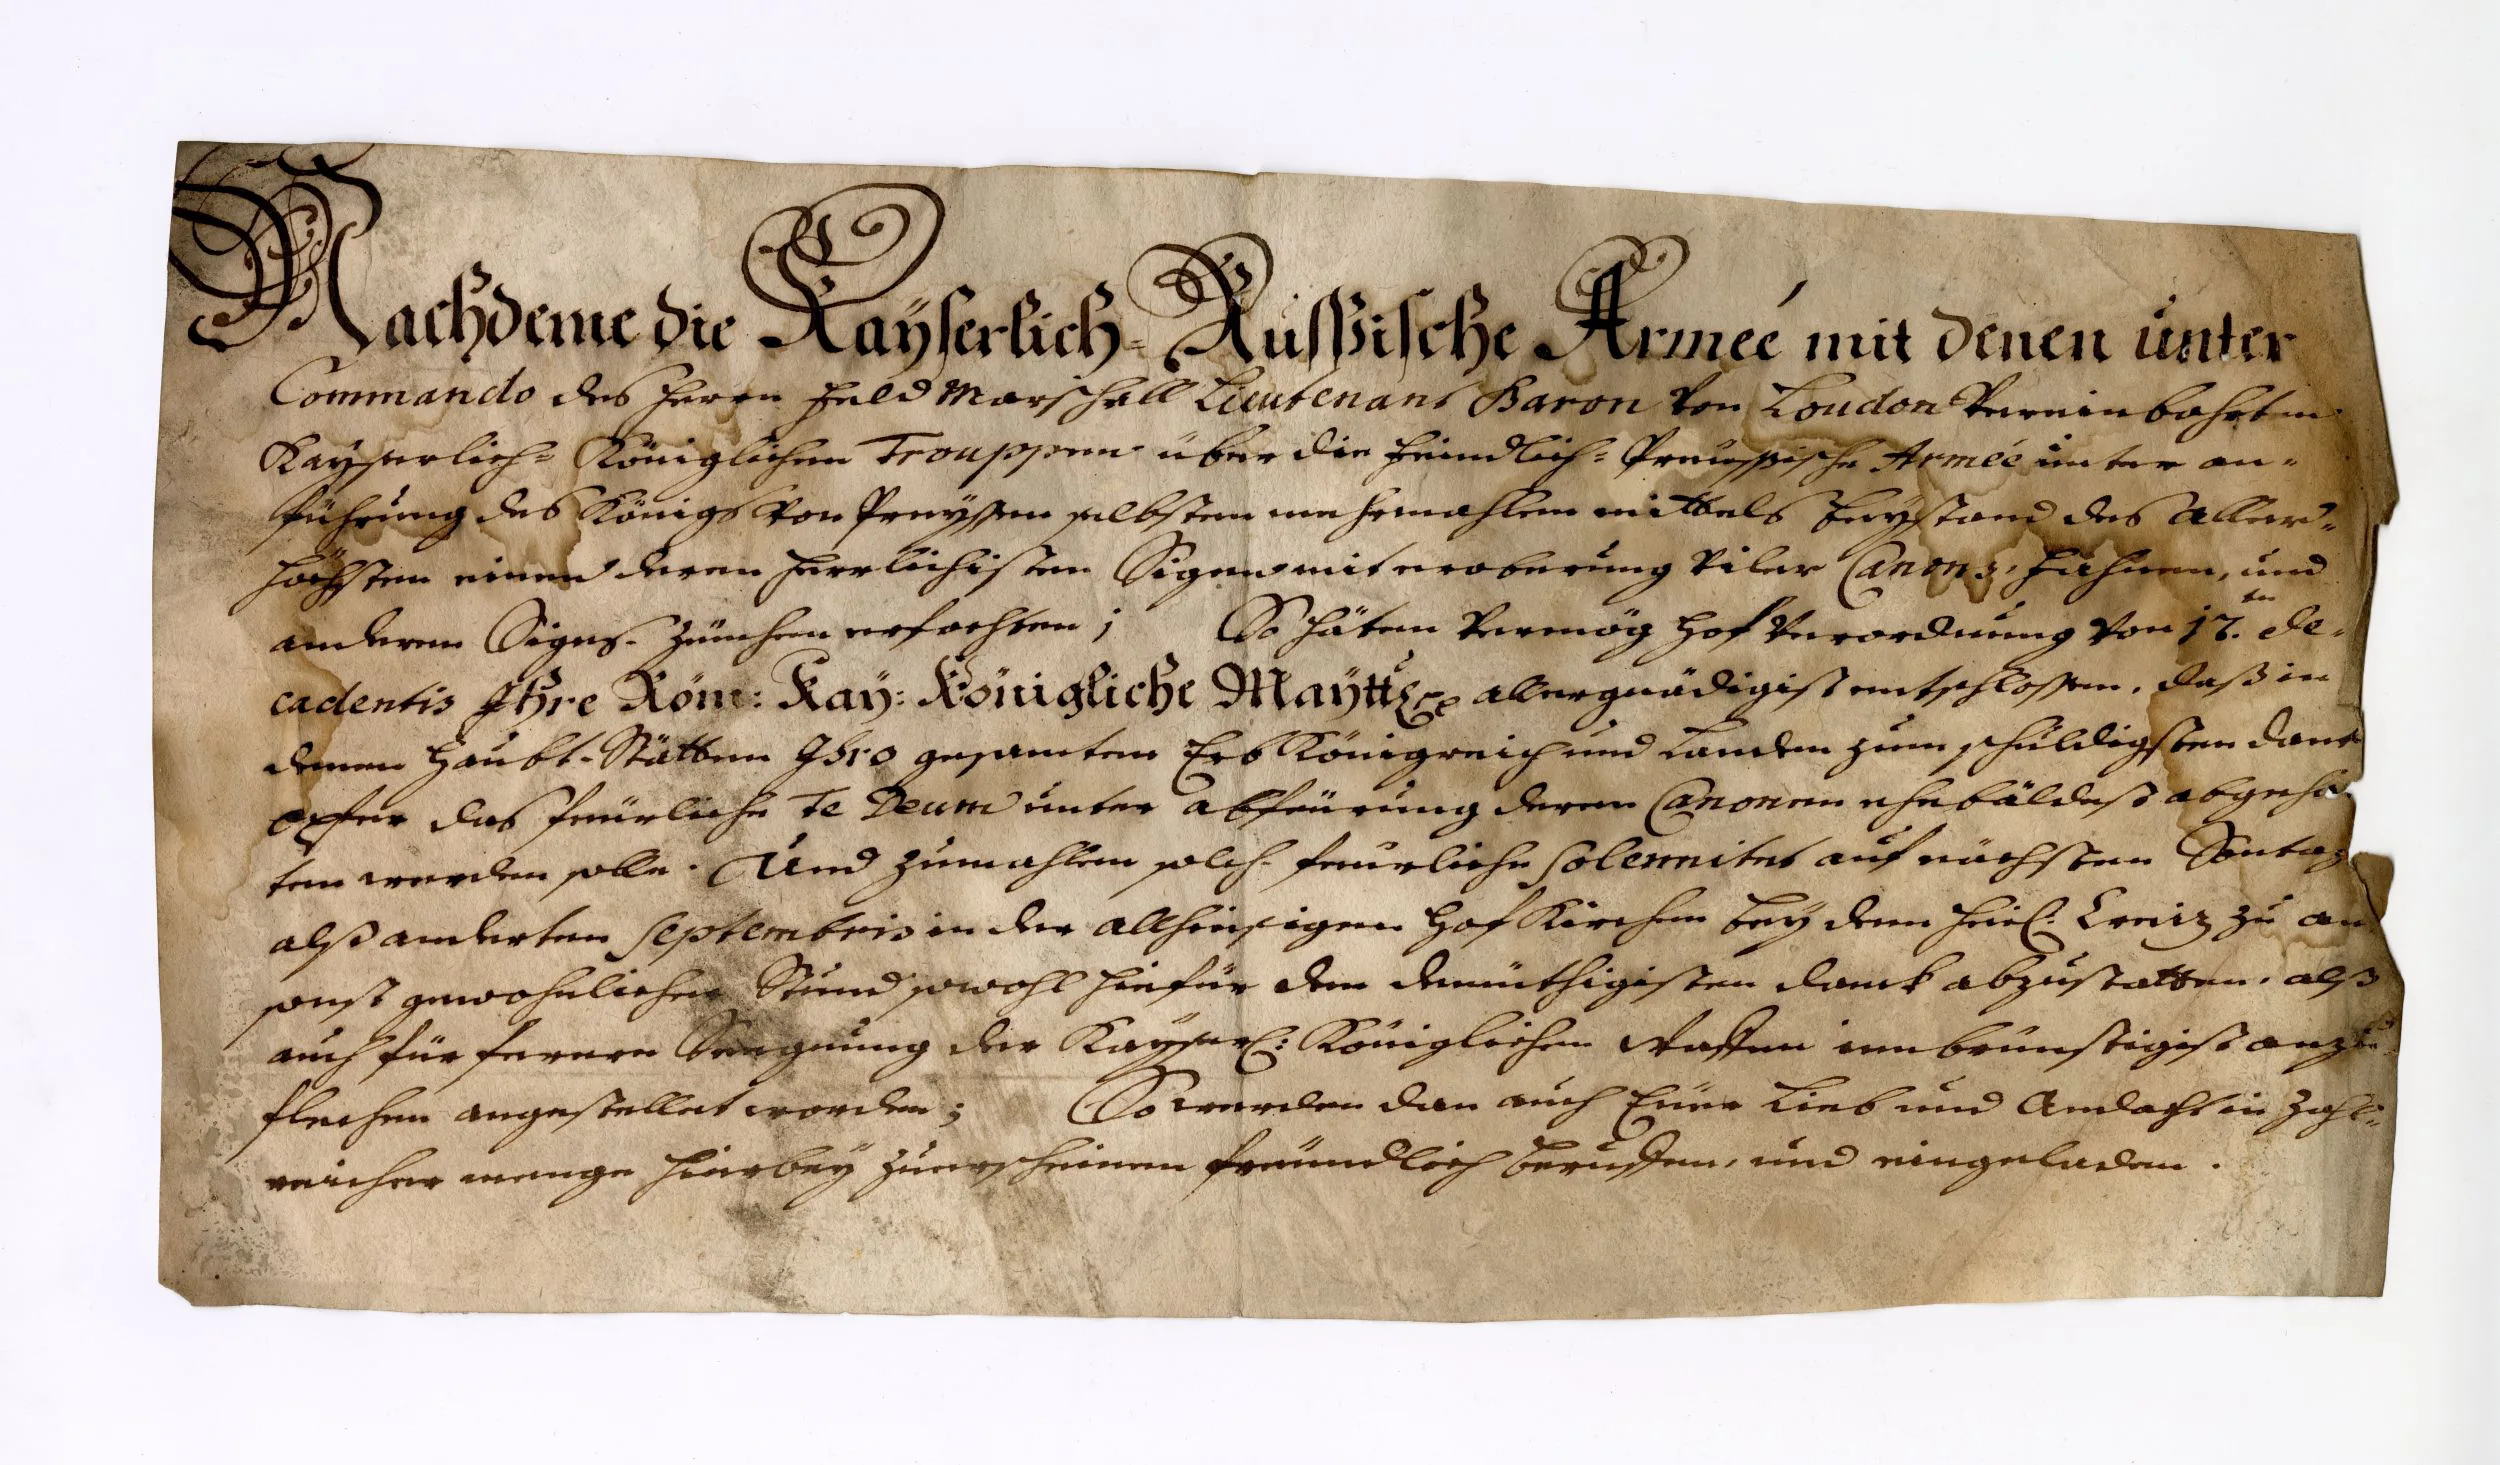 Nachdeme die Kayserlich-Russische Armeé mit denen unter
Commando des Herrn Feld Marschall Lieutenant Baron von Loudon Vereinbahrten
Kayserlich= Königlichen Trouppen über die Feindlich= Preüssische Armeé unter an=
führung des Königs von Preyssen selbsten mehrmahlen mittels Beystand des Aller=
höchsten einen deren Herrlichisten Sigen mit eroberung viler Canons, Fahnen, und
anderen Sigs-Zeichen erfochten; So häten Vermög Hof Verordnung von 17.ten de=
cadentis Ihre Röm: Kay: Königliche Maytt allergnädigist entschlossen, daß in
denen Haubt-Stätten Ihro gesamten Erb Königreich und Landen zum schuldigsten danck
opfer das feürliche Te Deum unter abfeürung deren Canonen ehebäldest abgehal
ten werden solle. Und zumahlen solch feurliche Solennitet auf nächsten Sontag
alß anderten Septembris in der allhiesigen Hof Kirchen bey dem Heil: Creitz zu an
sonst gewohnlicher Stund sowohl hiefür den demüthigisten danck abzustatten, alß
auch für fernere Seegnung der Kayserl: Königlichen Waffen innbrünstigist anzu
flechen angestellet worden; So werden dan auch Eüer Lieb und Andacht in Zahl=
reicher menge hierbey zuerscheinen freündlich beruffen, und eingeladen.